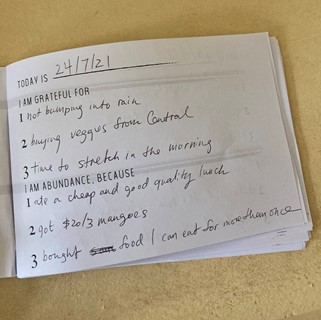 TODAY IS 24/7/21
I AM GRATEFUL FOR
1 not bumping into rain
2 buying veggies from Central
3 time to stretch in the morning
I AM ABUNDANCE, BECAUSE
1 ate a cheap and good quality lunch
2 got $20/3 mangoes
3 bought food I can eat for more than once